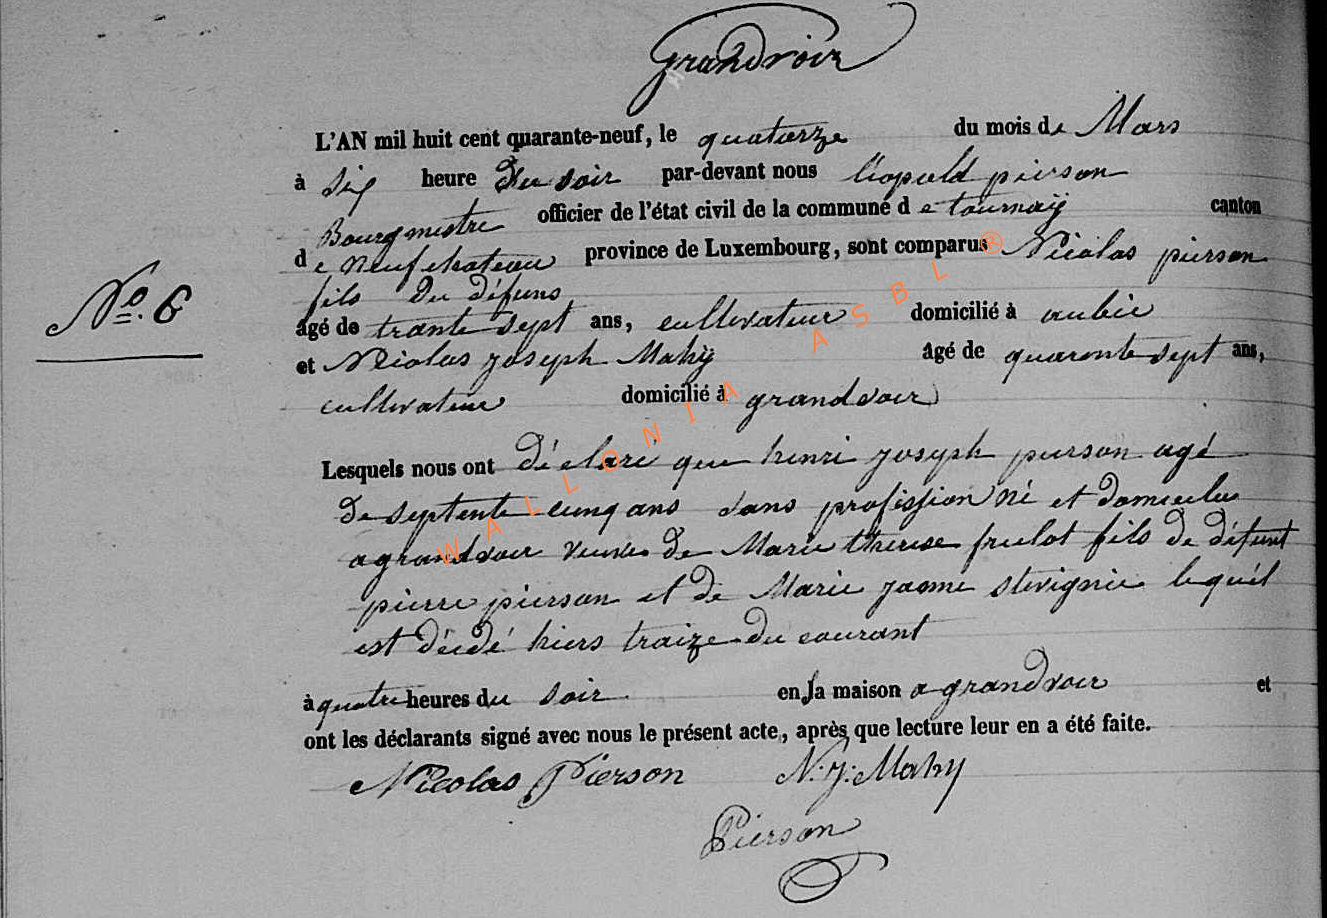 Grandvoir
L'AN mil huit cent quarante-neuf, le quatorze du mois de Mars
à six heure du soir par-devant nous léopold pierson
Bourgmestre officier de l'état civil de la commune d e tournaÿ canton
d e neufchateau province de Luxembourg, sont comparus Nicolas pierson
fils du défuns
No. 6
âgé de trante sept ans, cultivateur domicilié à
et Nicolas joseph Mahÿ âgé de quarente sept ans,
cultivateur domicilié à grandvoir
Lesquels nous ont déclaré que henri joseph pierson agé
de septente cinq ans sans profission né et domicilie
a grandvoir veuve de Marie therese frulot fils de défunt
pierre pierson et de Marie jaenne stevignie lequél
est décidé hiers traize du courant
à quatre heures du soir en la maison a grandvoir et
ont les déclarants signé avec nous le présent acte, après que lecture leur en a été faite.
Nicolas Pierson N. J. Mahy
Pierson
WALLONIA ASBL ®